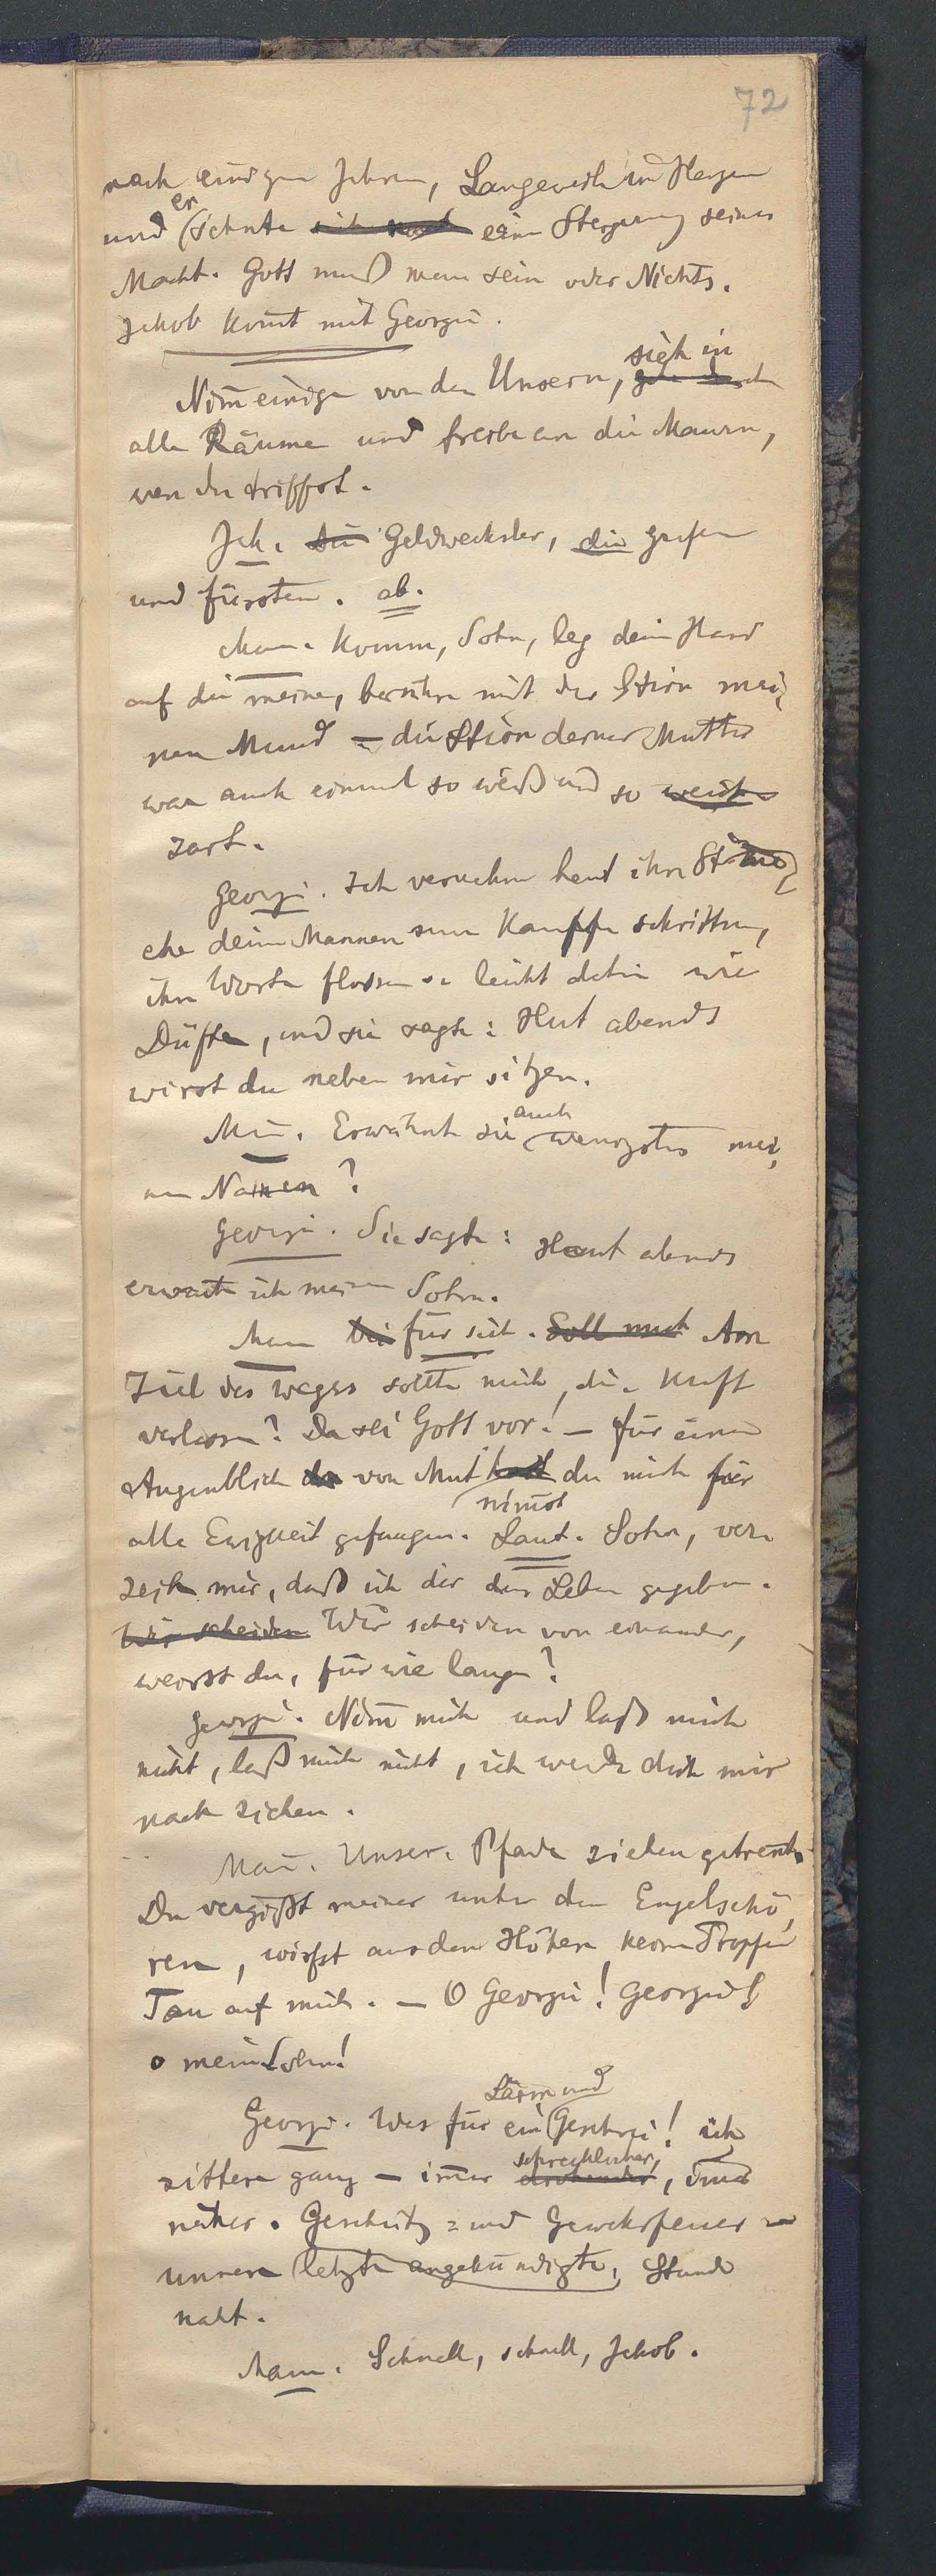 72
nach einigen Jahren, Langeweile im Herzen
und er sehnte sich nach eine Steigerung seiner
Macht. Gott muß man sein oder Nichts.
Jakob kom̅t mit Georgii.
Nim̅ einige von den Unsern, sieh in
alle Räume und treibe an die Mauern,
wen du triffst.
Jak. die Geldwechsler, die Grafen
und Fürsten. ab.
Man. Komm, Sohn, leg deine Hand
auf die meine, berühre mit der Stirn mei-
nen Mund – die Stirn deiner Mutter
war auch einmal so weiß und so weich
zart.
Georgi. Ich vernahm heut ihre Stim̅e,
ehe deine Mannen zum Kampffe schritten,
ihre Worte flossen so leicht dahin wie
Düfte, und sie sagte: Heut abends
wirst du neben mir sitzen.
Man. Erwähnte sie auch wenigstens mei-
nen Namen?
Georgi. Sie sagte: Heut abends
erwarte ich meinen Sohn.
Man bei für sich. Soll mich Am
Ziel des Weges sollte mich die Kraft
verlassen? Da sei Gott vor! – Für einen
Augenblick der von Mut hast du mich für
nim̅st
alle Ewigkeit gefangen. Laut. Sohn, ver-
zeih mir, daß ich dir das Leben gegeben.
Wir scheiden Wir scheiden von einander,
weisst du, für wie lange?
Georgi. Nim̅ mich und laß mich
nicht, laß mich nicht, ich werde dich mir
nach ziehen.
Man. Unsere Pfade ziehen getrennt.
Du vergißt meiner unter den Engelschö-
ren, wirfst aus den Höhen keinen Tropfen
Tau auf mich. – O Georgii! Georgii!
o mein Sohn!
Lärm und
Georgi. Was für ein Geschrei! ich
schrecklicher,
zittere ganz – im̅er drohender, im̅er
näher. Geschütz- und Gewehrfeuer –
unsere letzte angekündigte, Stunde
naht.
Man. Schnell, schnell, Jakob.